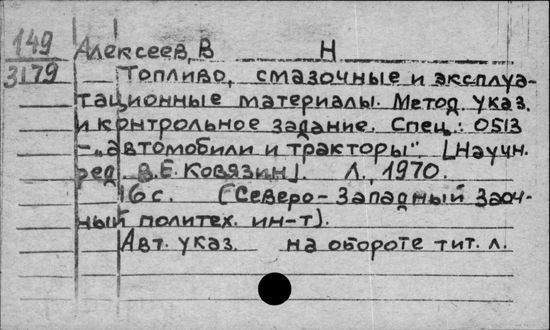 149
3179
Алексеев, В Н
Топливо, смазочные и эксплуа-
тационные материалы. Метод. указ.
и контрольное задание. Спец.: 0513
- "автомобили и тракторы" [Научн.
ред. В.Е. Ковязин]. Л., 1970.
16 с. (Северо-Западный заоч-
ный политех. ин-т).
Авт. указ. на обороте тит. л.